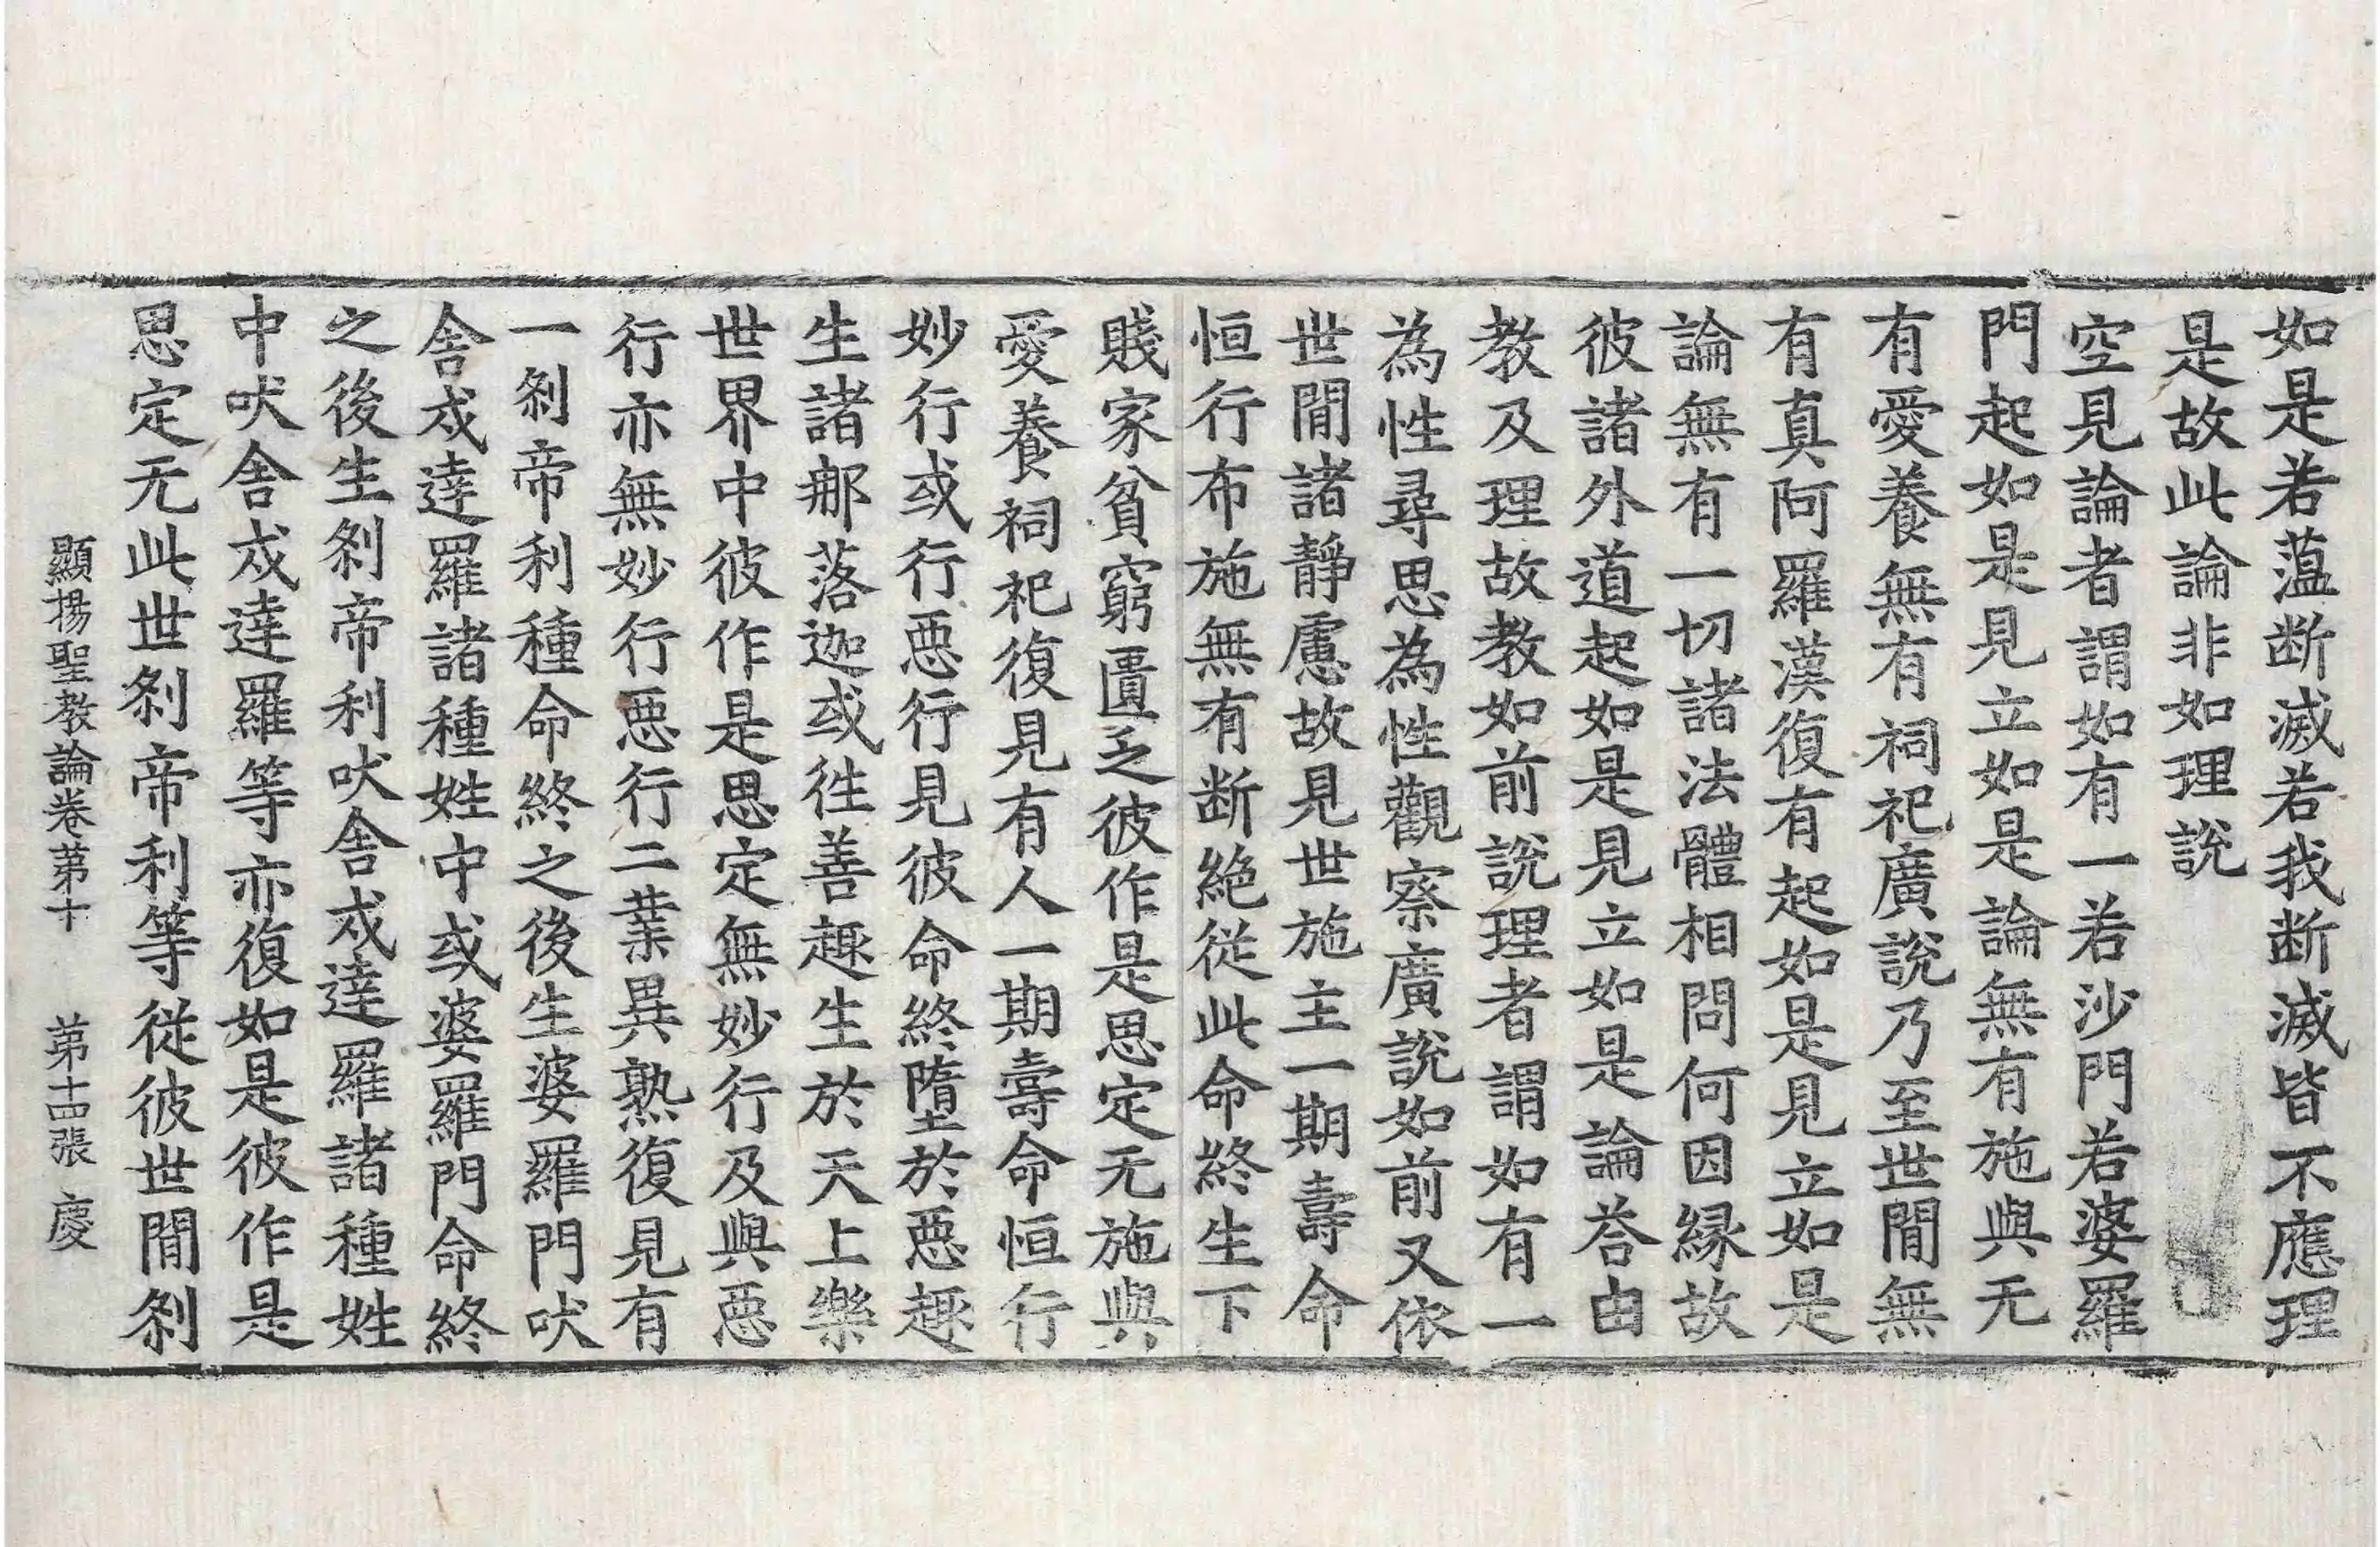 如是若薀断滅若我断滅皆不應理
是故此論非如理說
空見論者謂如有一若沙門若婆羅
門起如是見立如是論無有施與无
有愛養無有祠祀廣說乃至世閒無
有真阿羅漢復有起如是見立如是
論無有一切諸法體相問何因縁故
彼諸外道起如是見立如是論荅由
教及理故教如前說理者謂如有一
為性尋思為性觀察廣說如前又依
世閒諸靜慮故見世施主一期壽命
恒行布施無有断絶從此命終生下
賤家貧窮匱乏彼作是思定无施與
愛養祠祀復見有人一期壽命恒行
妙行或行惡行見彼命終墮於惡趣
生諸那落迦或徃善趣生於天上樂
世界中彼作是思定無妙行及與惡
行亦無妙行惡行二業異熟復見有
一剎帝利種命終之後生婆羅門吠
舍戍達羅諸種姓中或婆羅門命終
之後生剎帝利吠舍戍達羅諸種姓
中吠舍戍達羅等亦復如是彼作是
思定无此世剎帝利等從彼世閒剎
顯揚聖教論卷苐十　苐十四張　慶